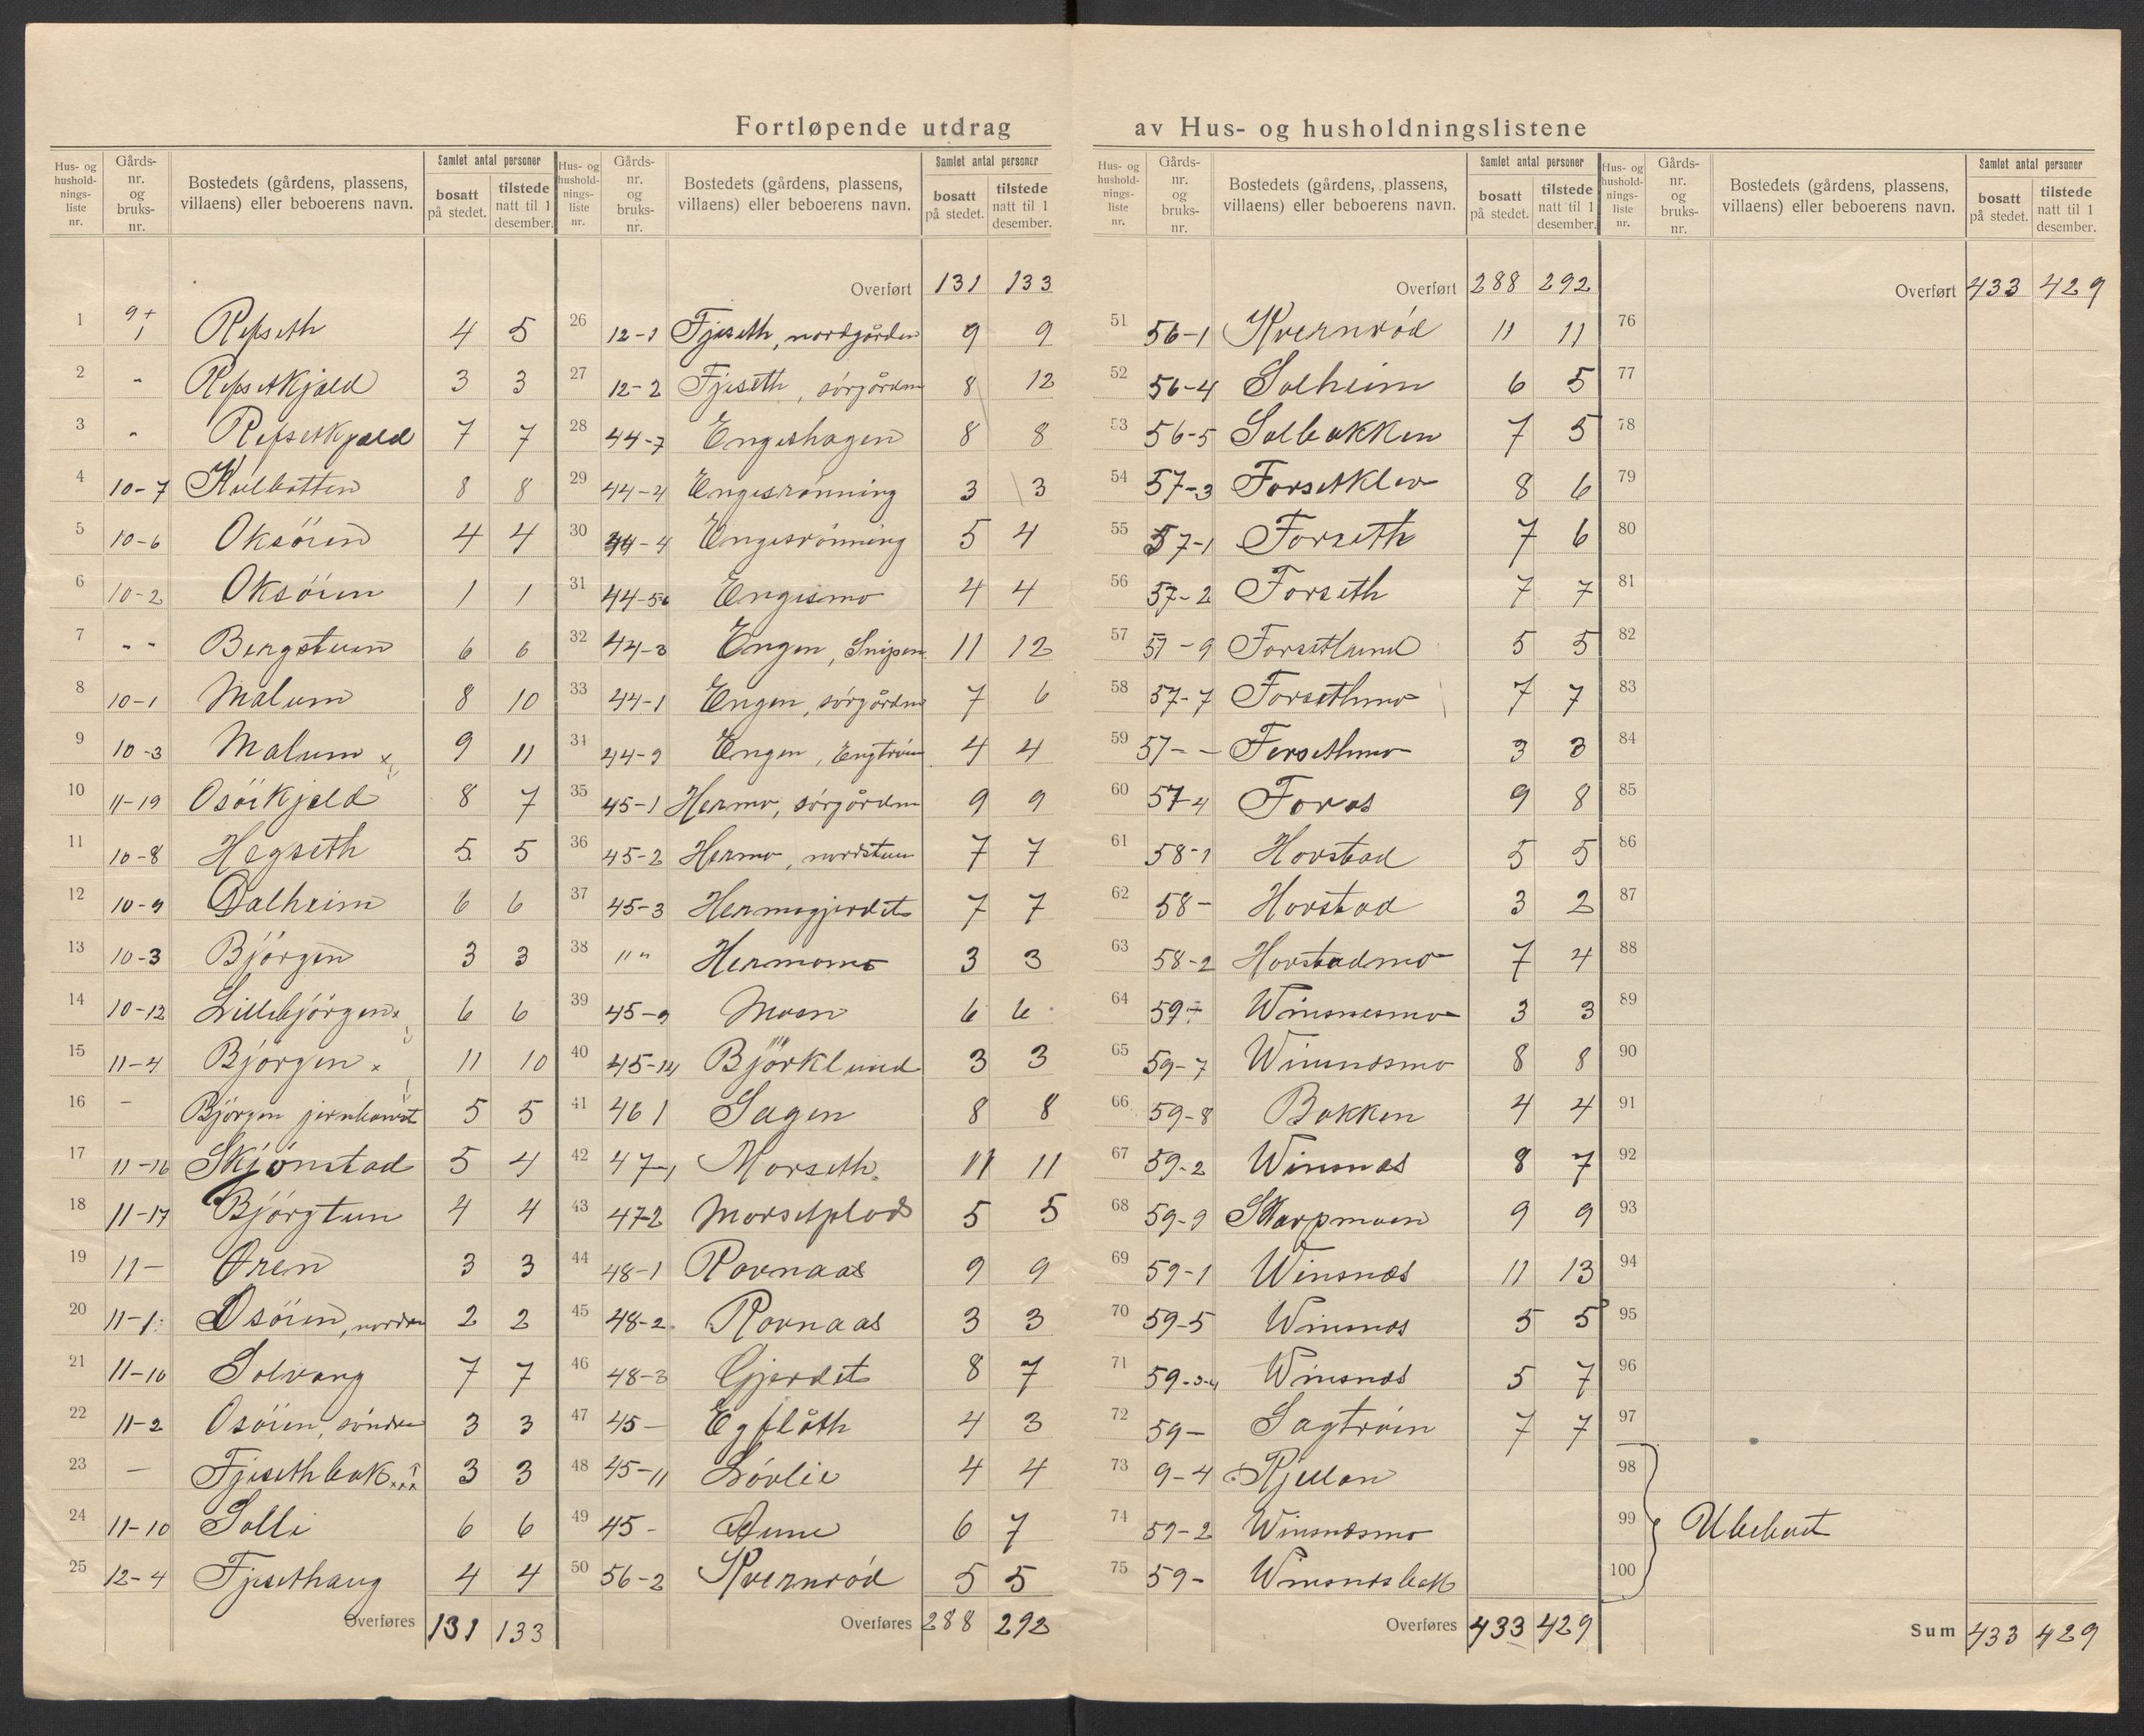 Fortløpende utdrag av Hus- og husholdningslistene
Hus- og husholdnings-liste nr. | Gårds-nr. og bruks-nr. | Bostedets (gårdens, plassens, villaens) eller beboerens navn. | Samlet antal personer | bosatt på stedet. | tilstede natt til 1 desember.
1 9+1 Repseth 4 5
2 - Repsetkjæld 3 3
3 - Repsetkjæld 7 7
4 10-7 Kulbotten 8 8
5 10-6 Oksöien 4 4
6 10-2 Oksöien 1 1
7 - - Bergstuen 6 6
8 10-1 Malum 8 10
9 10-3 Malum x 9 11
10 11-19 Osöikjeld 8 7
11 10-8 Hegseth 5 5
12 10-9 Dalheim 6 6
13 10-3 Björgen 3 3
14 10-12 Lillebjörgen x 6 6
15 11-4 Björgen x 11 10
16 - Björgen jernbanest 5 5
17 11-16 Skjönstad 5 4
18 11-17 Björgtun 4 4
19 11- Øren 3 3
20 11-1 Osöien, nordre 2 2
21 11-16 Solvang 7 7
22 11-2 Osöien, söndre 3 3
23 - Fjesethbak 3 3
24 11-10 Solli 6 6
25 12-4 Fjesethaug 4 4
Overføres 131 133
Hus- og husholdnings-liste nr. | Gårds-nr. og bruks-nr. | Bostedets (gårdens, plassens, villaens) eller beboerens navn. | Samlet antal personer | bosatt på stedet. | tilstede natt til 1 desember.
Overført 131 133
26 12-1 Fjeseth, nordgården 9 9
27 12-2 Fjeseth, sörgården 8 12
28 44-7 Engeshagen 8 8
29 44-4 Engesrönning 3 3
30 44-4 Engesrönning 5 4
31 44-56 Engesmo 4 4
32 44-3 Engen, Snipen 11 12
33 44-1 Engen, sörgården 7 6
34 44-9 Engen, Engtröen 4 4
35 45-1 Hermo, sörgården 9 9
36 45-2 Hermo, nordstuen 7 7
37 45-3 Hermogjerdet 7 7
38 " " Hermomo 3 3
39 45-9 Moen 6 6
40 45-14 Björklund 3 3
41 46 1 Sagen 8 8
42 47-1 Morseth 11 11
43 47-2 Morsetplads 5 5
44 48-1 Ravnaas 9 9
45 48-2 Ravnaas 3 3
46 48-3 Gjerdet 8 7
47 45- Egflåth 4 3
48 45-11 Lövlie 4 4
49 45- Aune 6 7
50 56-2 Kvernröd 5 5
Overføres 288 292
Hus- og husholdnings-liste nr. | Gårds-nr. og bruks-nr. | Bostedets (gårdens, plassens, villaens) eller beboerens navn. | Samlet antal personer | bosatt på stedet. | tilstede natt til 1 desember.
Overført 288 292
51 56-1 Kvernröd 11 11
52 56-4 Solheim 6 5
53 56-5 Solbakken 7 5
54 57-3 Forsetklev 8 6
55 57-1 Forseth 7 6
56 57-2 Forseth 7 7
57 57-9 Forsetlund 5 5
58 57-7 Forsethmo 7 7
59 57- - Forsethmo 3 3
60 57-4 Foras 9 8
61 58-1 Horstad 5 5
62 58- Horstad 3 2
63 58-2 Horstadmo 7 4
64 59- Winsnesmo 3 3
65 59-7 Winsnesmo 8 8
66 59-8 Bakken 4 4
67 59-2 Winsnes 8 7
68 59-9 Skarpmoen 9 9
69 59-1 Winsnes 11 13
70 59-5 Winsnes 5 5
71 59-3-4 Winsnes 5 7
72 59- Sagtröen 7 7
73 9-4 Kjellan
74 59-2 Winsnesmo
75 59- Winsnesbak
Overføres 433 429
Hus- og husholdnings-liste nr. | Gårds-nr. og bruks-nr. | Bostedets (gårdens, plassens, villaens) eller beboerens navn. | Samlet antal personer | bosatt på stedet. | tilstede natt til 1 desember.
Overført 433 429
76
77
78
79
80
81
82
83
84
85
86
87
88
89
90
91
92
93
94
95
96
97
98
99 Ubeboet
100
Sum 433 429